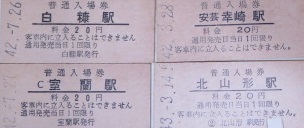 42.-7.26
普通入場券
白糠駅
料金20円
通用発売当日1回限り
客車内に立入ることはできません
白糠駅発行
普通入場券
安芸幸崎駅
料金20円
通用発売当日1回限り
客車内に立入ることはできません
普通入場券
C室蘭駅
料金20円
通用発売当日1回限り
客車内に立入ることはできません
室蘭駅発行
普通入場券
北山形駅
料金20円
通用発売当日1回限り
客車内に立入ることはできません
北山形駅発行